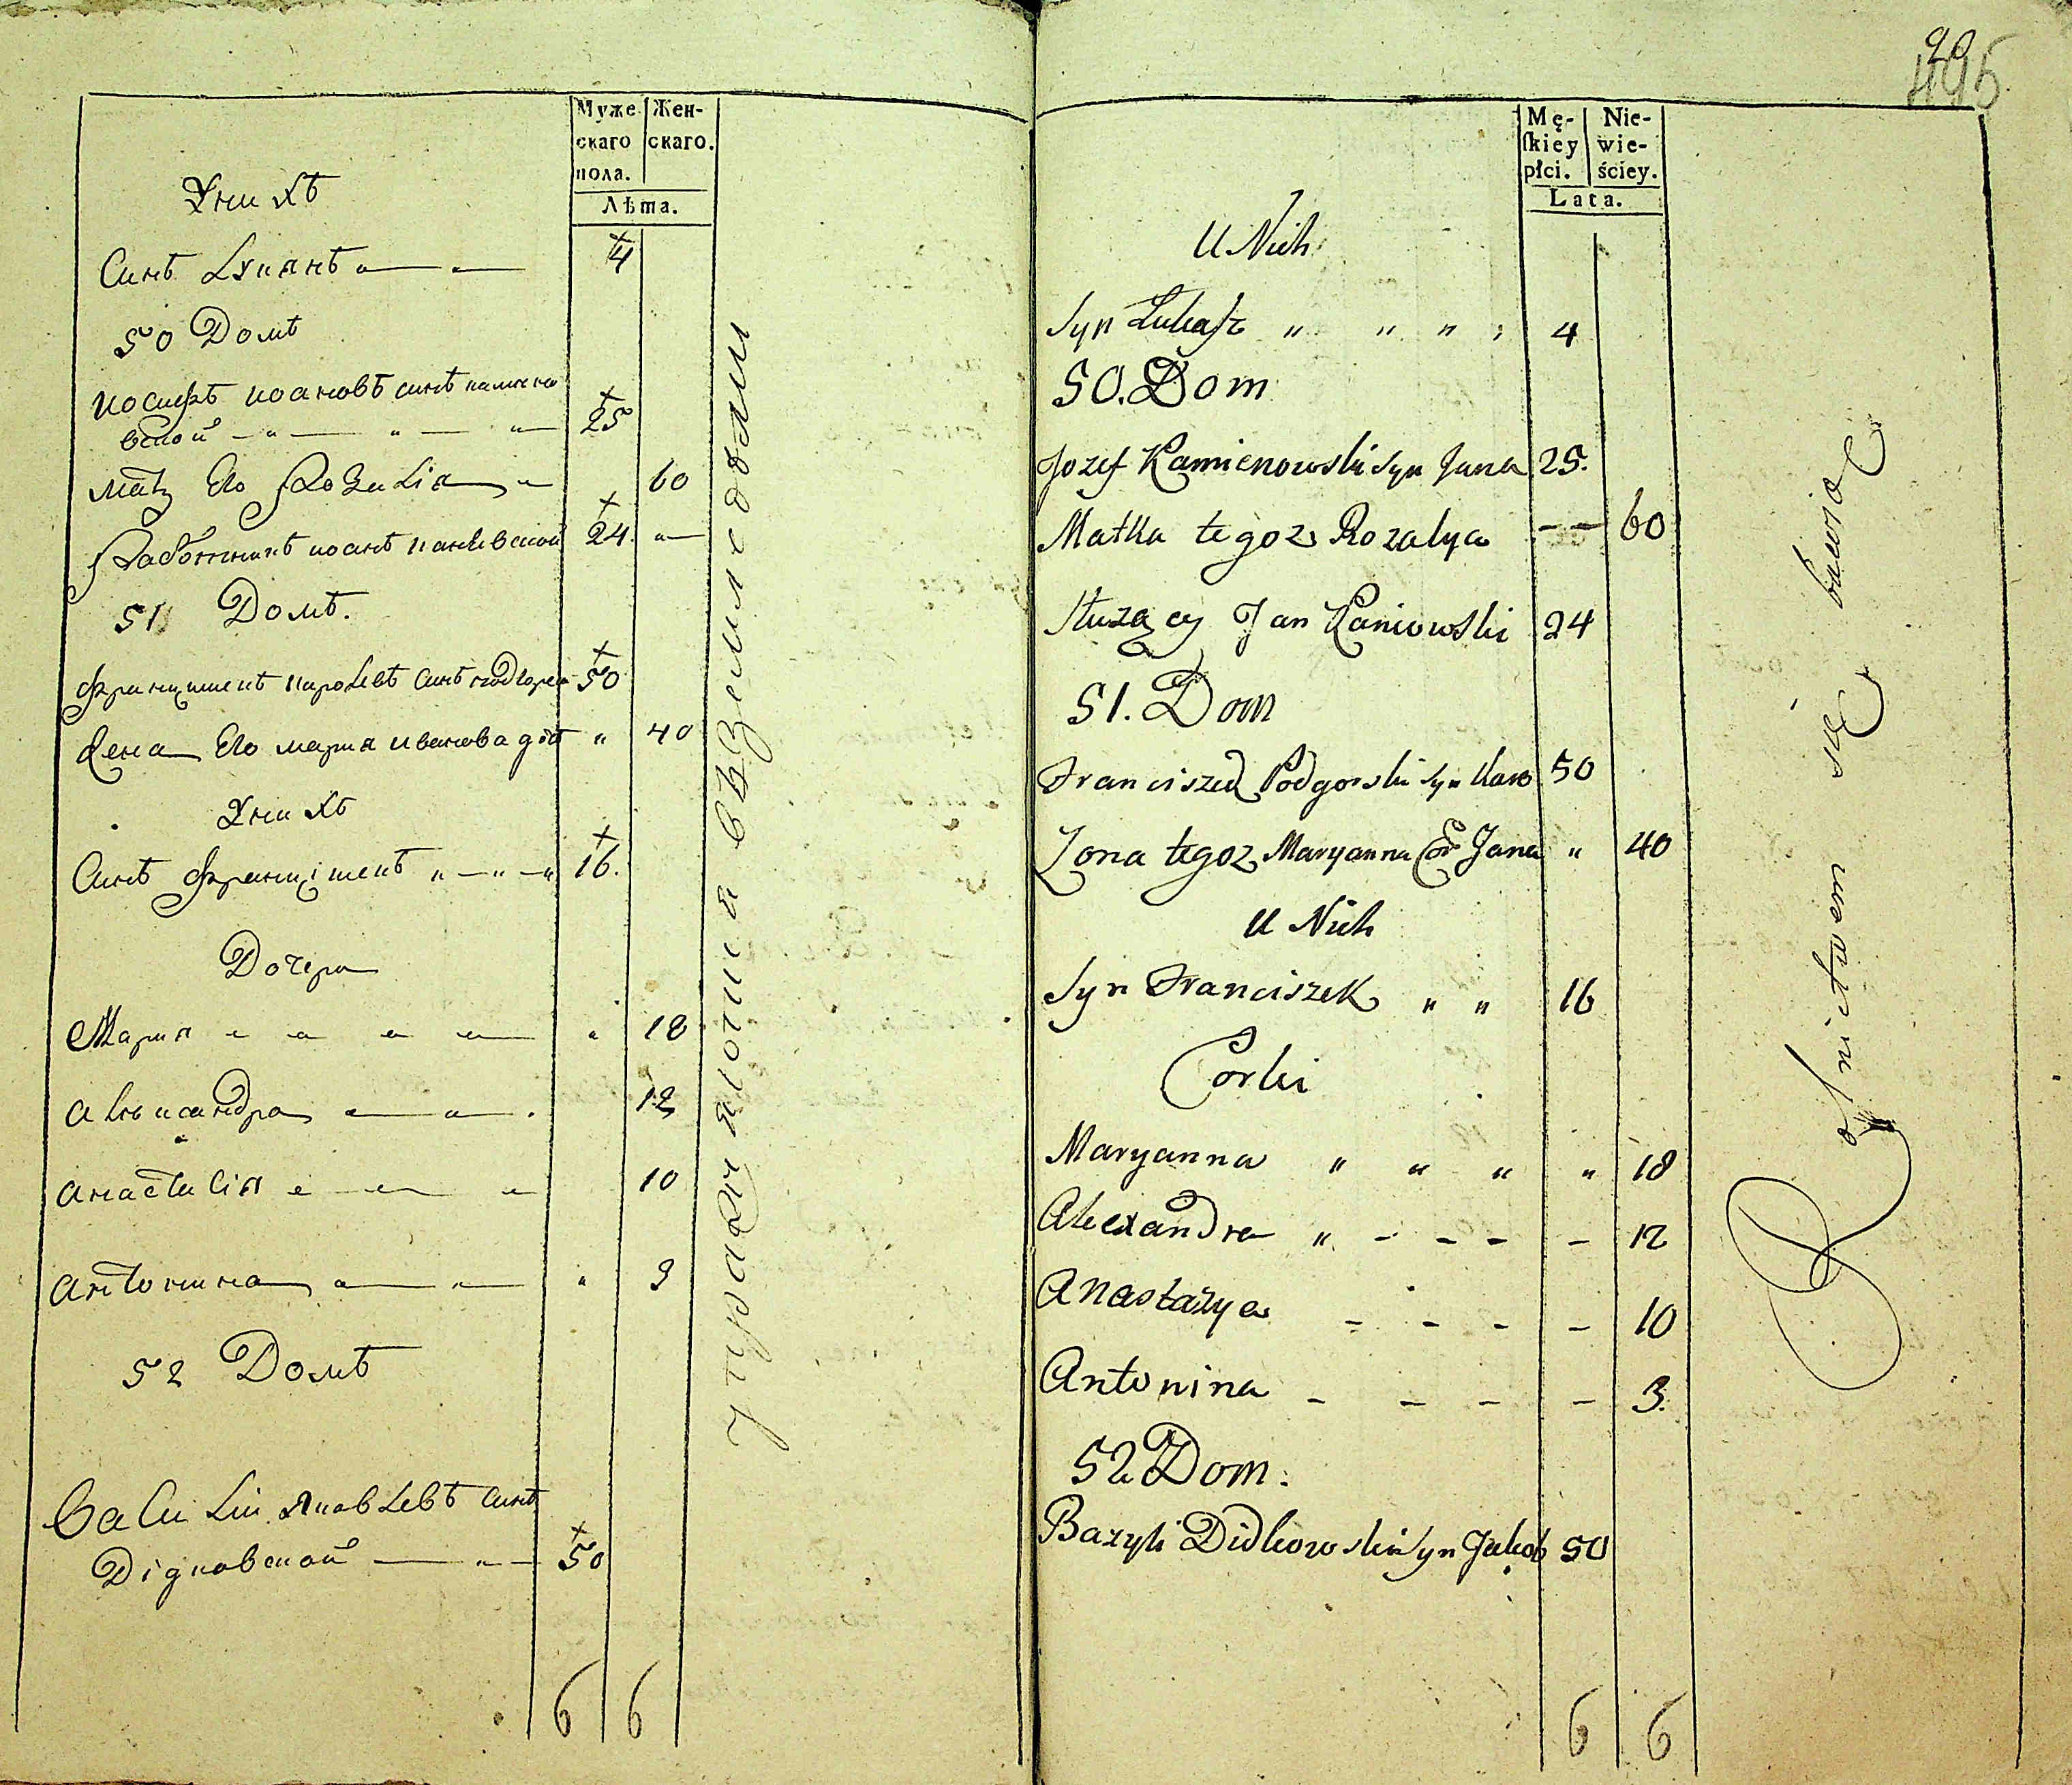 Муже скаго пола.
Жен- скаго.
Лѣта.
У них
Синъ Лукянъ 4
50 Домъ
иосифъ иоановъ синъ камено
вской 25
мать Его Розалія 60
Работникъ иоанъ каневской 24
51 Домъ.
францишекъ каролевъ синъ подгорск 50
Жена Его мария иванова 40
У них
Синъ францішекъ 16.
Дочери
Мария 18
александра 12
анастасія 10
антонина 3
52 Домъ
Василій Яковлевъ синъ
Дідковской 50
6 6
20
495
Mę- ſkiey płci.
Nie- wie- ściey.
Lata.
U Nich
Syn Łukasz 4
50. Dom
Jozef Kamienowski Syn Jana 25.
Matka tegoz Rozalya 60
Służący Jan Kaniowski 24
51. Dom
Franciszek Podgorski Syn Karo 50
Zona tegoz Maryanna Cor Jana 40
U Nich
Syn Franciszek 16
Corki
Maryanna 18
Alexandra 12
Anastazya 10
Antonina 3.
52 Dom.
Bazyli Didkowski Syn Jakob 50
Rolnictwem się bawią
6 6